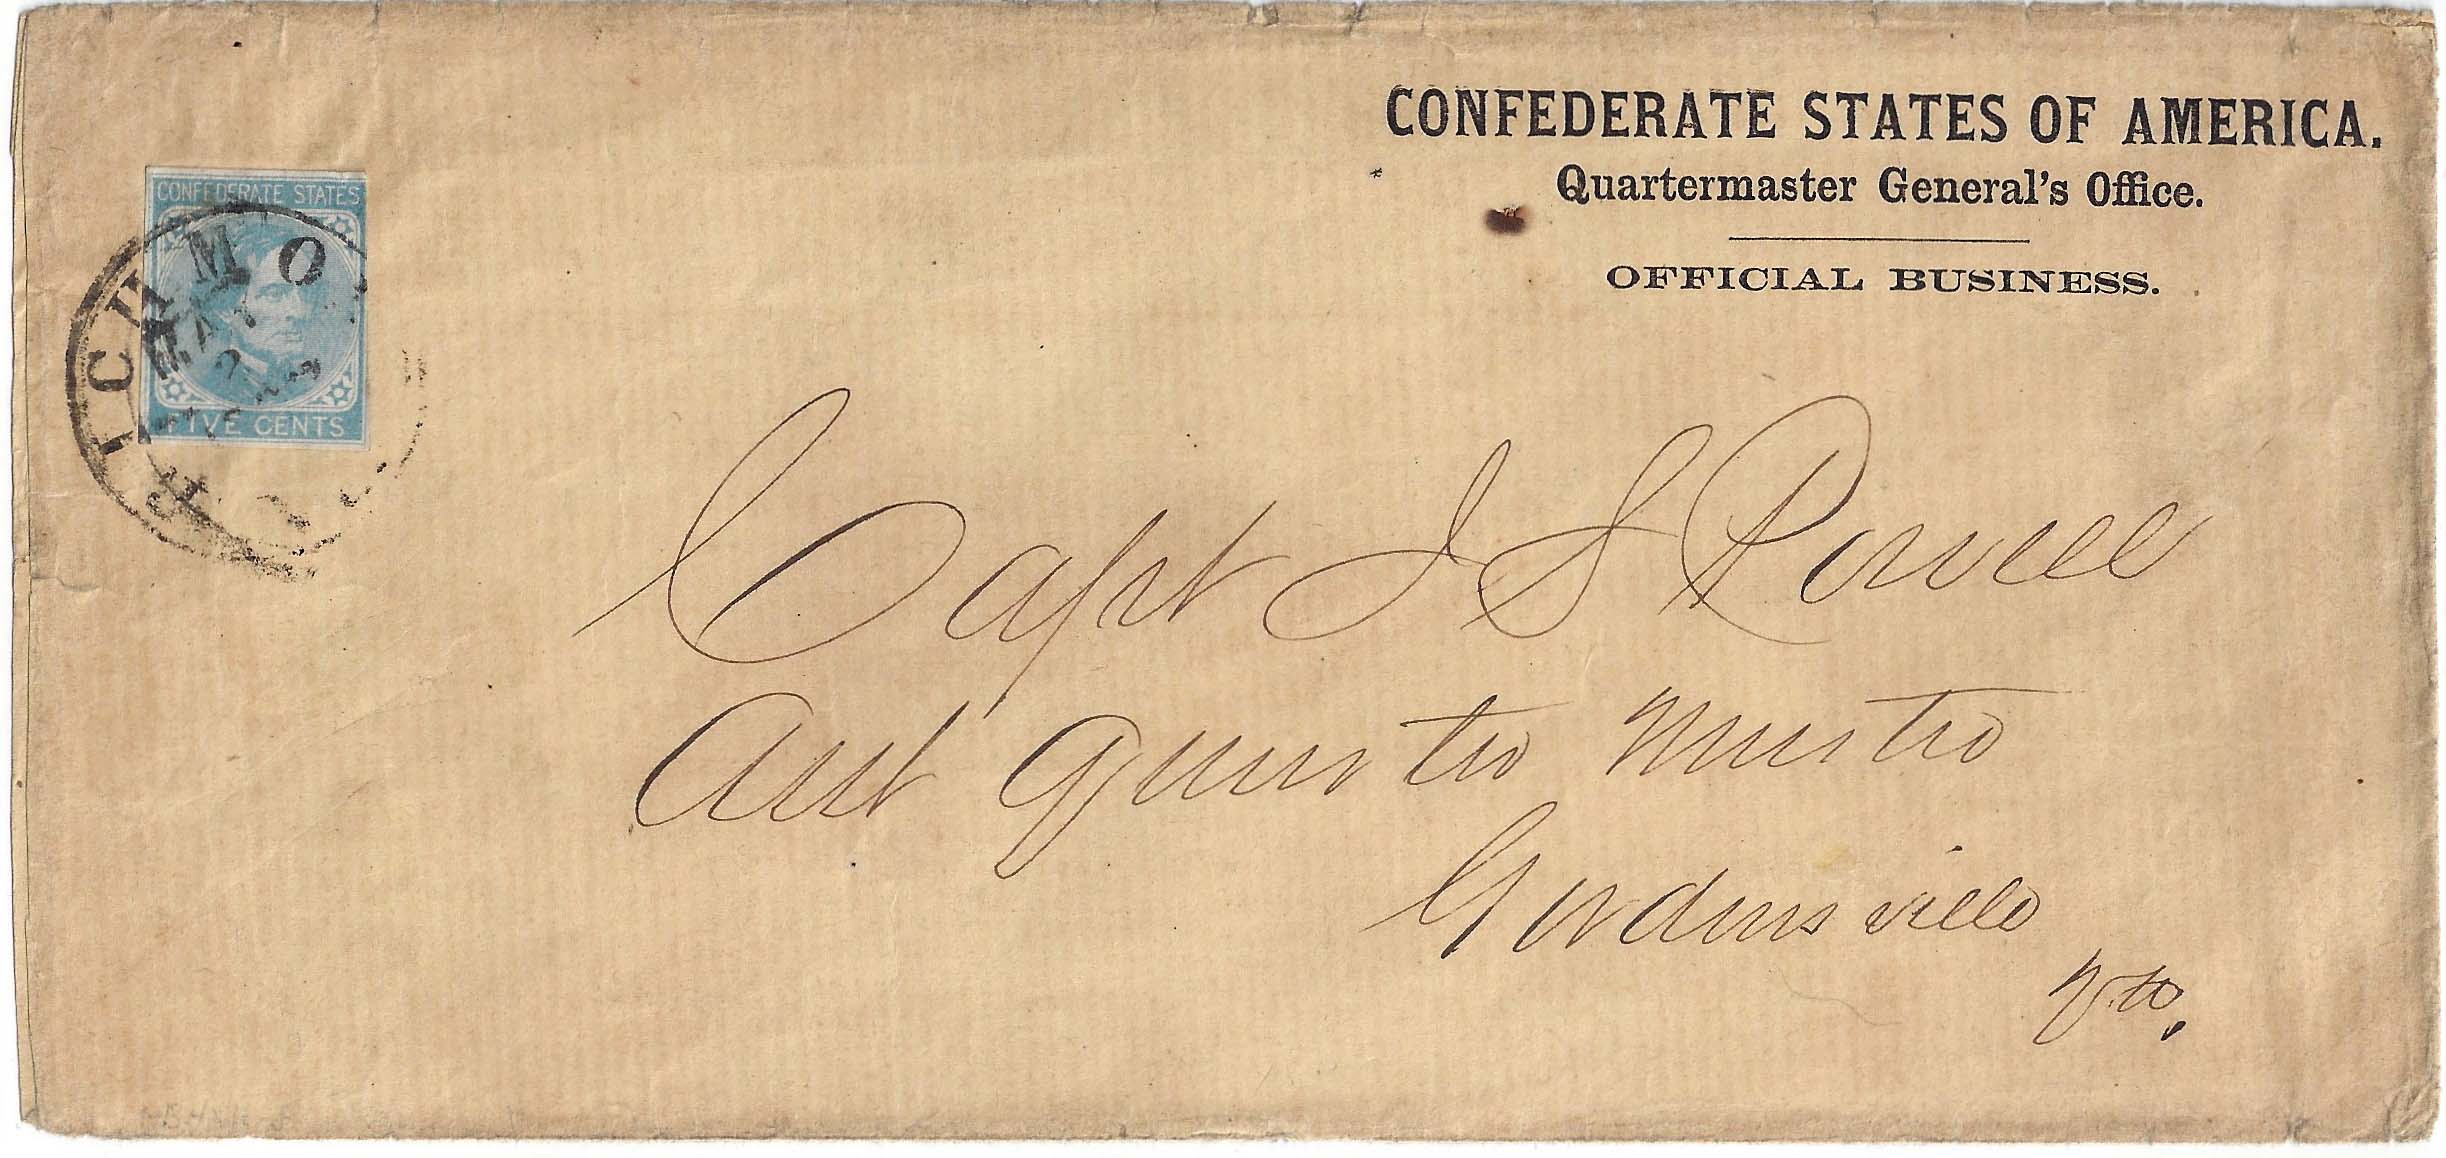 CONFEDERATE STATES OF AMERICA.
Quartermaster General's Office.
OFFICIAL BUSINESS.
CONFEDERATE STATES
FIVE CENTS
RICHMO
MAY
2
Capt J S Powell
Asst Quarter Master
Gordonsville
Va.